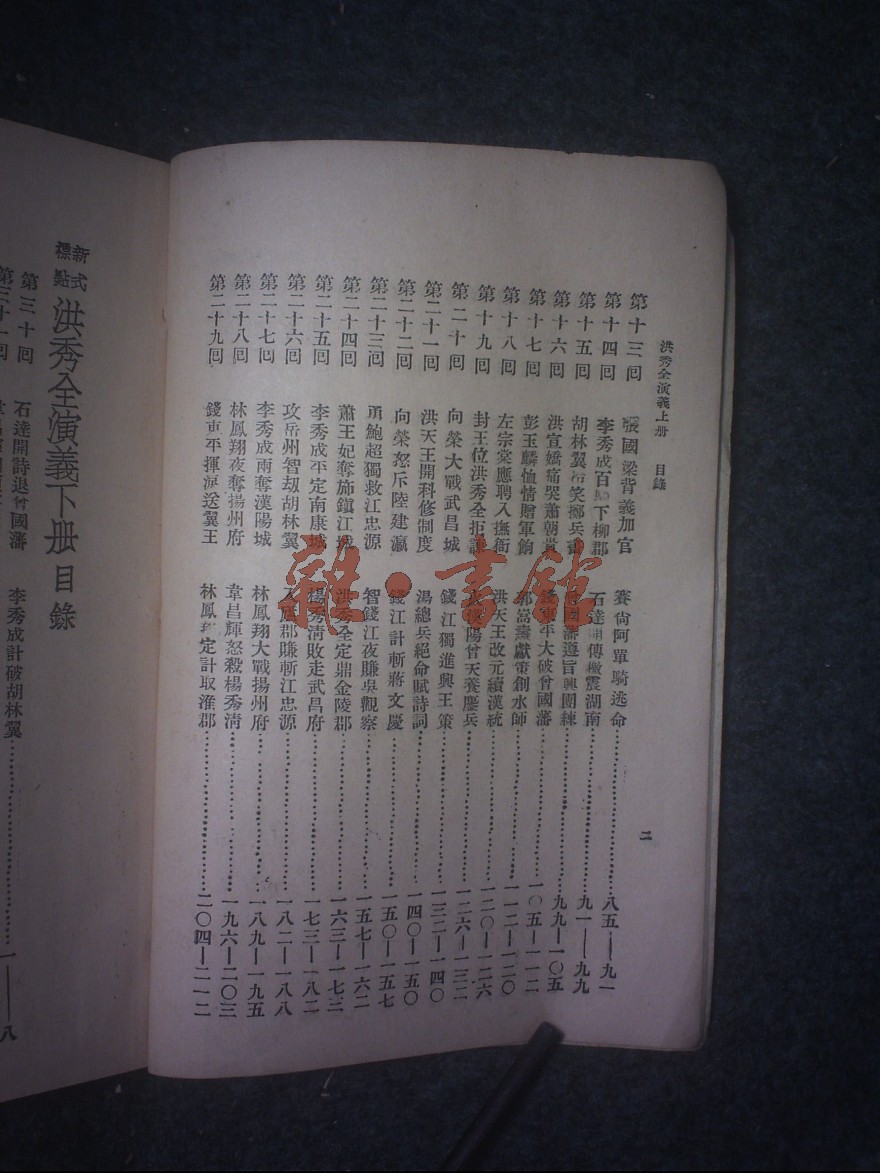 洪秀全演義上册 目錄 二
第十三囘 張國梁背義加官 賽尙阿單騎逃命 八五—九一
第十四囘 李秀成百 下柳郡 石達開傳檄震湖南 九一—九九
第十五囘 胡林翼 笑擲兵書 曾國藩遵旨興團練 九九—一〇五
第十六囘 洪宣嬌痛哭蕭朝貴 錢東平大破曾國藩 一〇五—一一二
第十七囘 彭玉麟恤情贈軍餉 郭嵩燾獻策創水師 一一二—一二〇
第十八囘 左宗棠應聘入撫衙 洪天王改元續漢統 一二〇—一二六
第十九囘 封王位洪秀全拒諫 漢陽曾天養鏖兵 一二六—一三二
第二十囘 向榮大戰武昌城 錢江獨進興王策 一三二—一四〇
第二十一囘 洪天王開科修制度 湯總兵絕命賦詩詞 一四〇—一五〇
第二十二囘 向榮怒斥陸建瀛 錢江計斬蔣文慶 一五〇—一五七
第二十三囘 勇鮑超獨救江忠源 智錢江夜賺吳觀察 一五七—一六二
第二十四囘 蕭王妃奪施鎮江城 洪秀全定鼎金陵郡 一六三—一七三
第二十五囘 李秀成平定南康城 楊秀淸敗走武昌府 一七三—一八二
第二十六囘 攻岳州智劫胡林翼 郡賺斬江忠源 一八二—一八八
第二十七囘 李秀成兩奪漢陽城 林鳳翔大戰揚州府 一八九—一九五
第二十八囘 林鳳翔夜奪揚州府 韋昌輝怒殺楊秀淸 一九六—二〇三
第二十九囘 錢東平揮淚送翼王 林鳳翔定計取淮郡 二〇四—二一二
新式標點 洪秀全演義下册目錄
第三十囘 石達開詩退曾國藩 李秀成計破胡林翼 一——八
第三十一囘